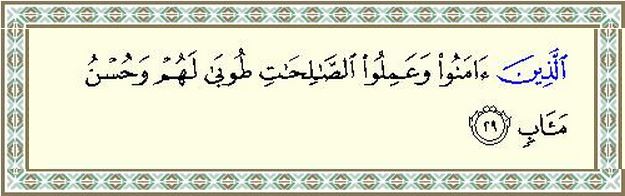 ٱلَّذِينَ ءَامَنُوا۟ وَعَمِلُوا۟ ٱلصَّـٰلِحَـٰتِ طُوبَىٰ لَهُمْ وَحُسْنُ
مَـَٔابٍ ٢٩